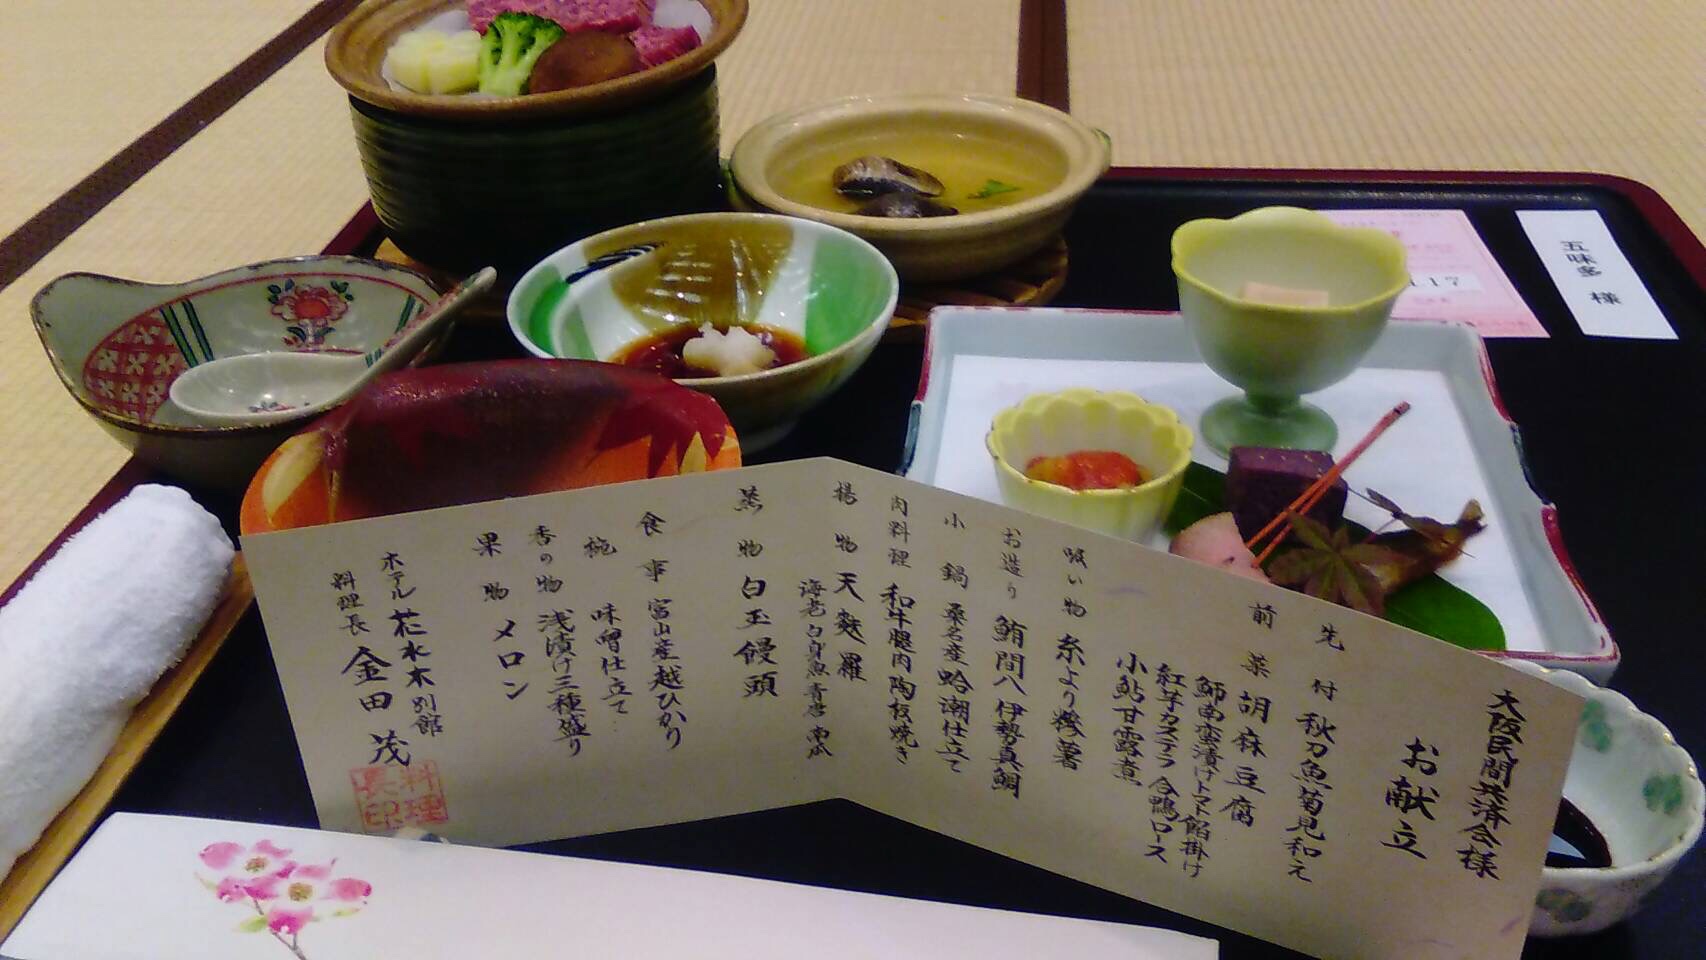 大阪民間共済会様
お献立
先付 秋刀魚菊見和え
前菜 胡麻豆腐
鰤南蛮漬けトマト餡掛け
紅芋カステラ 合鴨ロース
小鮎甘露煮
吸い物 糸より糝薯
お造り 鮪 間八 伊勢真鯛
小鍋 桑名産蛤潮仕立て
肉料理 和牛腿肉陶板焼き
揚物 天麩羅
海老 白身魚 青唐 南瓜
蒸物 白玉饅頭
食事 富山産越ひかり
椀 味噌仕立て
香の物 浅漬け三種盛り
果物 メロン
ホテル 花水木別館
料理長 金田 茂
料理長印
五味多 様
117